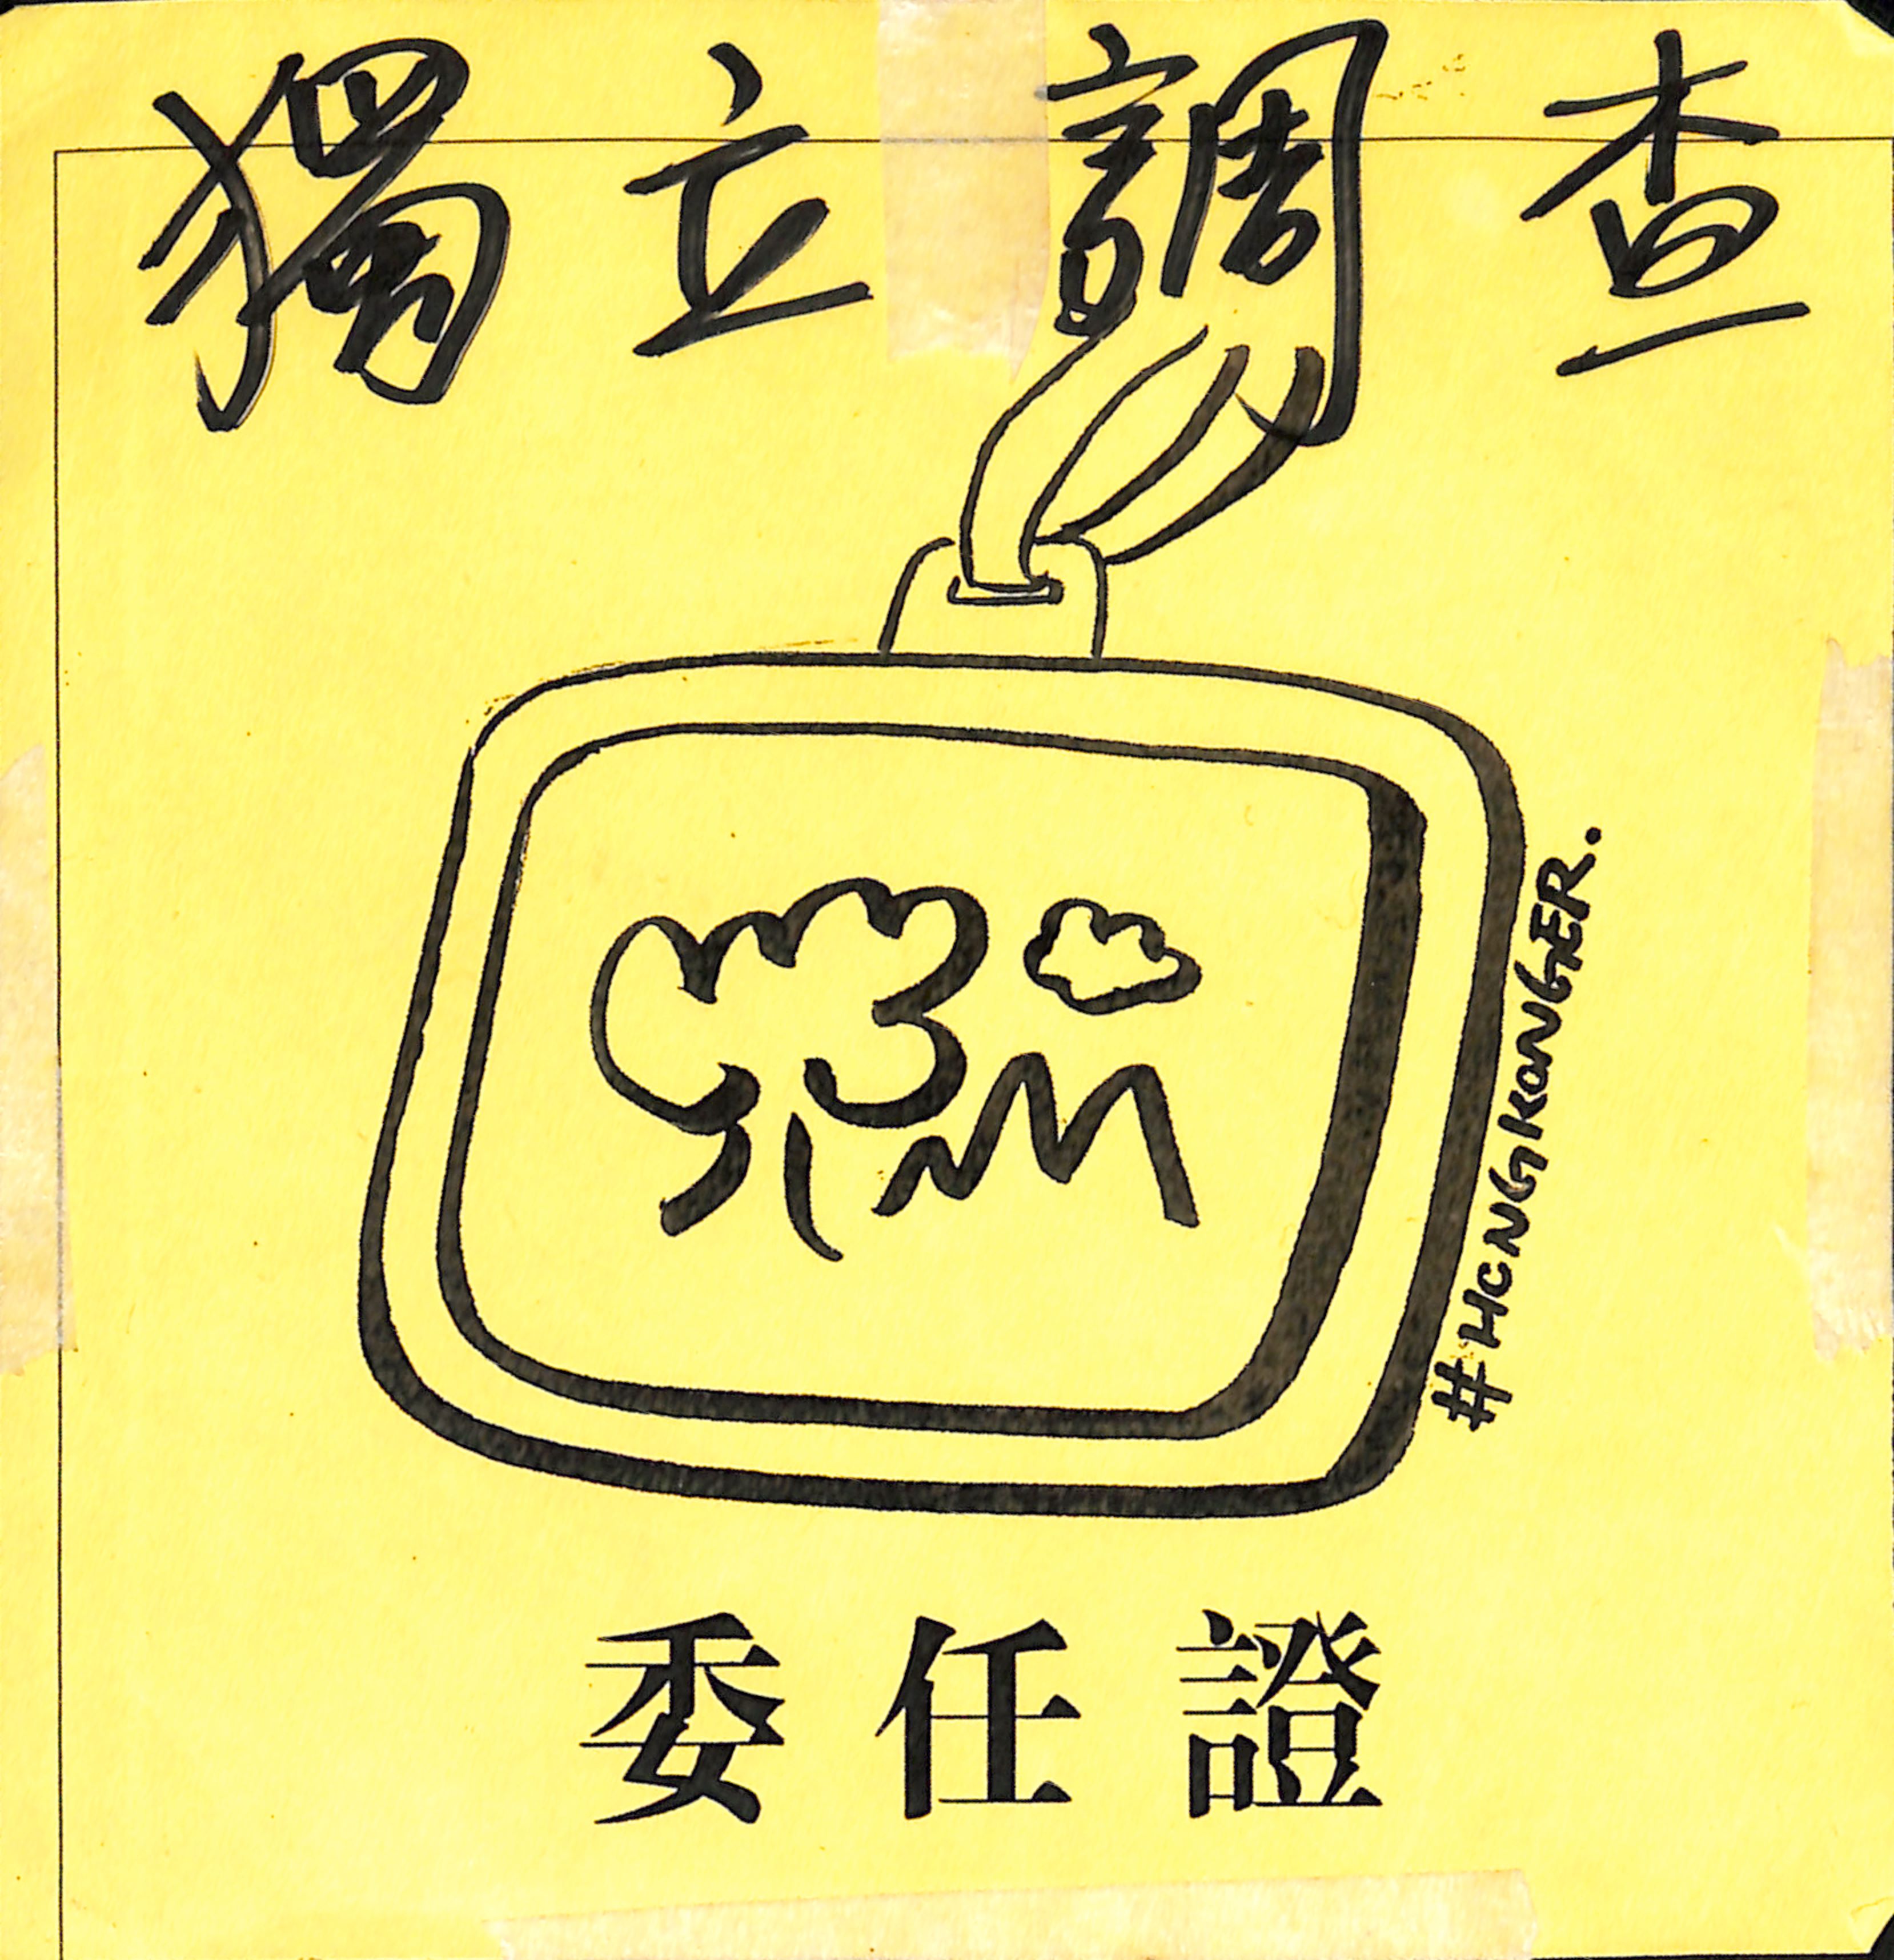 獨立調查
#HONGKONGER.
委任證